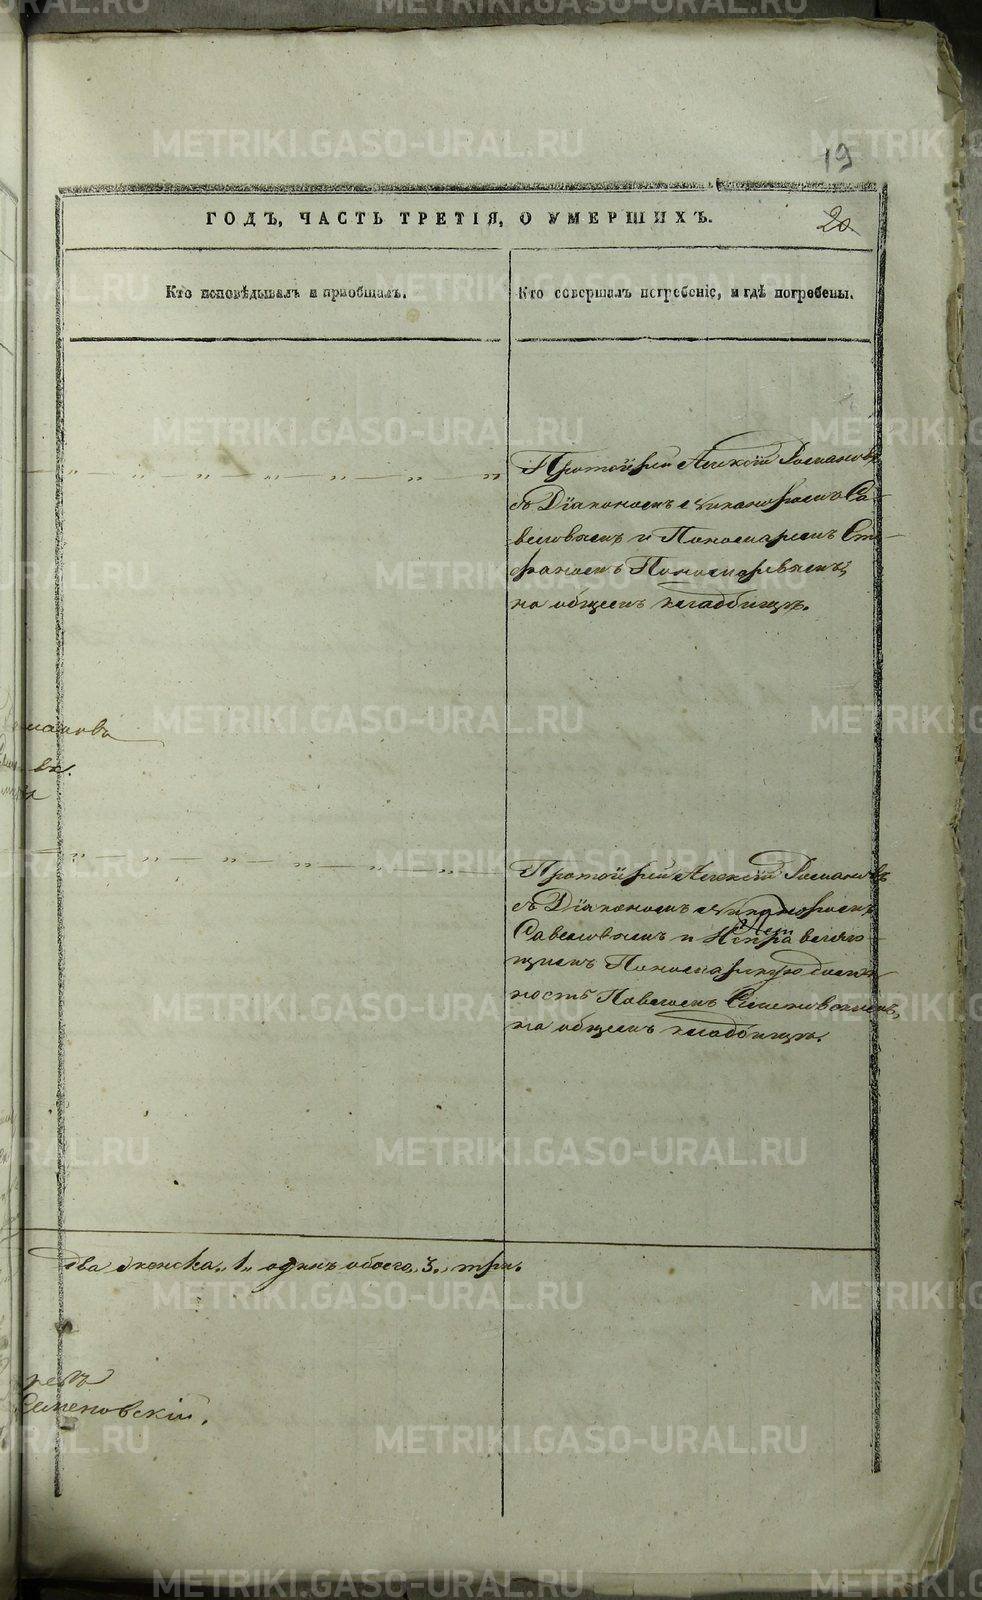 19
ГОДЪ, ЧАСТЬ ТРЕТІЯ, О УМЕРШИХЪ.
20
Кто исповѣдывалъ и пріобщалъ.
Кто совершалъ погребеніе, и гдѣ погребены.
Протоіерей Алексій Романовъ
съ Діакономъ Никаноромъ Са-
веловымъ и Пономаремъ Сте-
фаномъ Пономаревымъ;
на общемъ кладбищѣ.
Протоіерей Алексій Романовъ
съ Діакономъ Никаноромъ
Савеловымъ и Исправляю-
щимъ Пономарскую долж-
ность Павломъ Семеновскимъ,
на общемъ кладбищѣ.
два женска „1„ одинъ обоего „3„ три.
Семеновскій.
METRIKI.GASO-URAL.RU